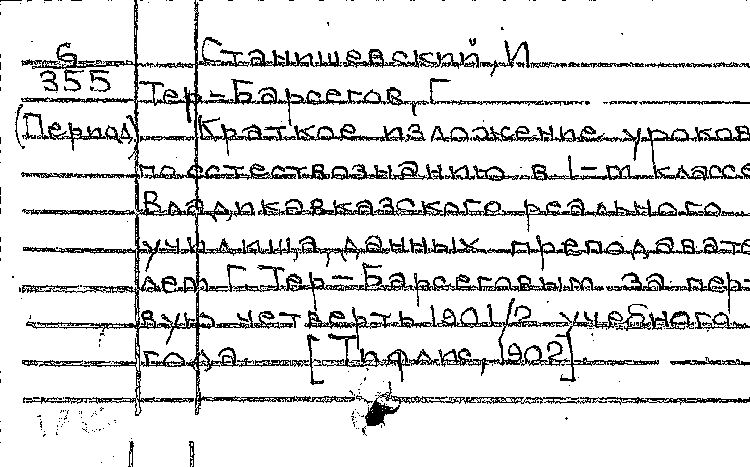 Б Станишевский, И
355 Тер-Барсегов, Г
(Период) Краткое изложение уроков
по естествознанию в 1-м классе
Владикавказского реального
училища, данных преподавате
лем Г. Тер-Барсеговым за пер-
вую четверть 1901/2 учебного
года. [Тифлис, 1902].